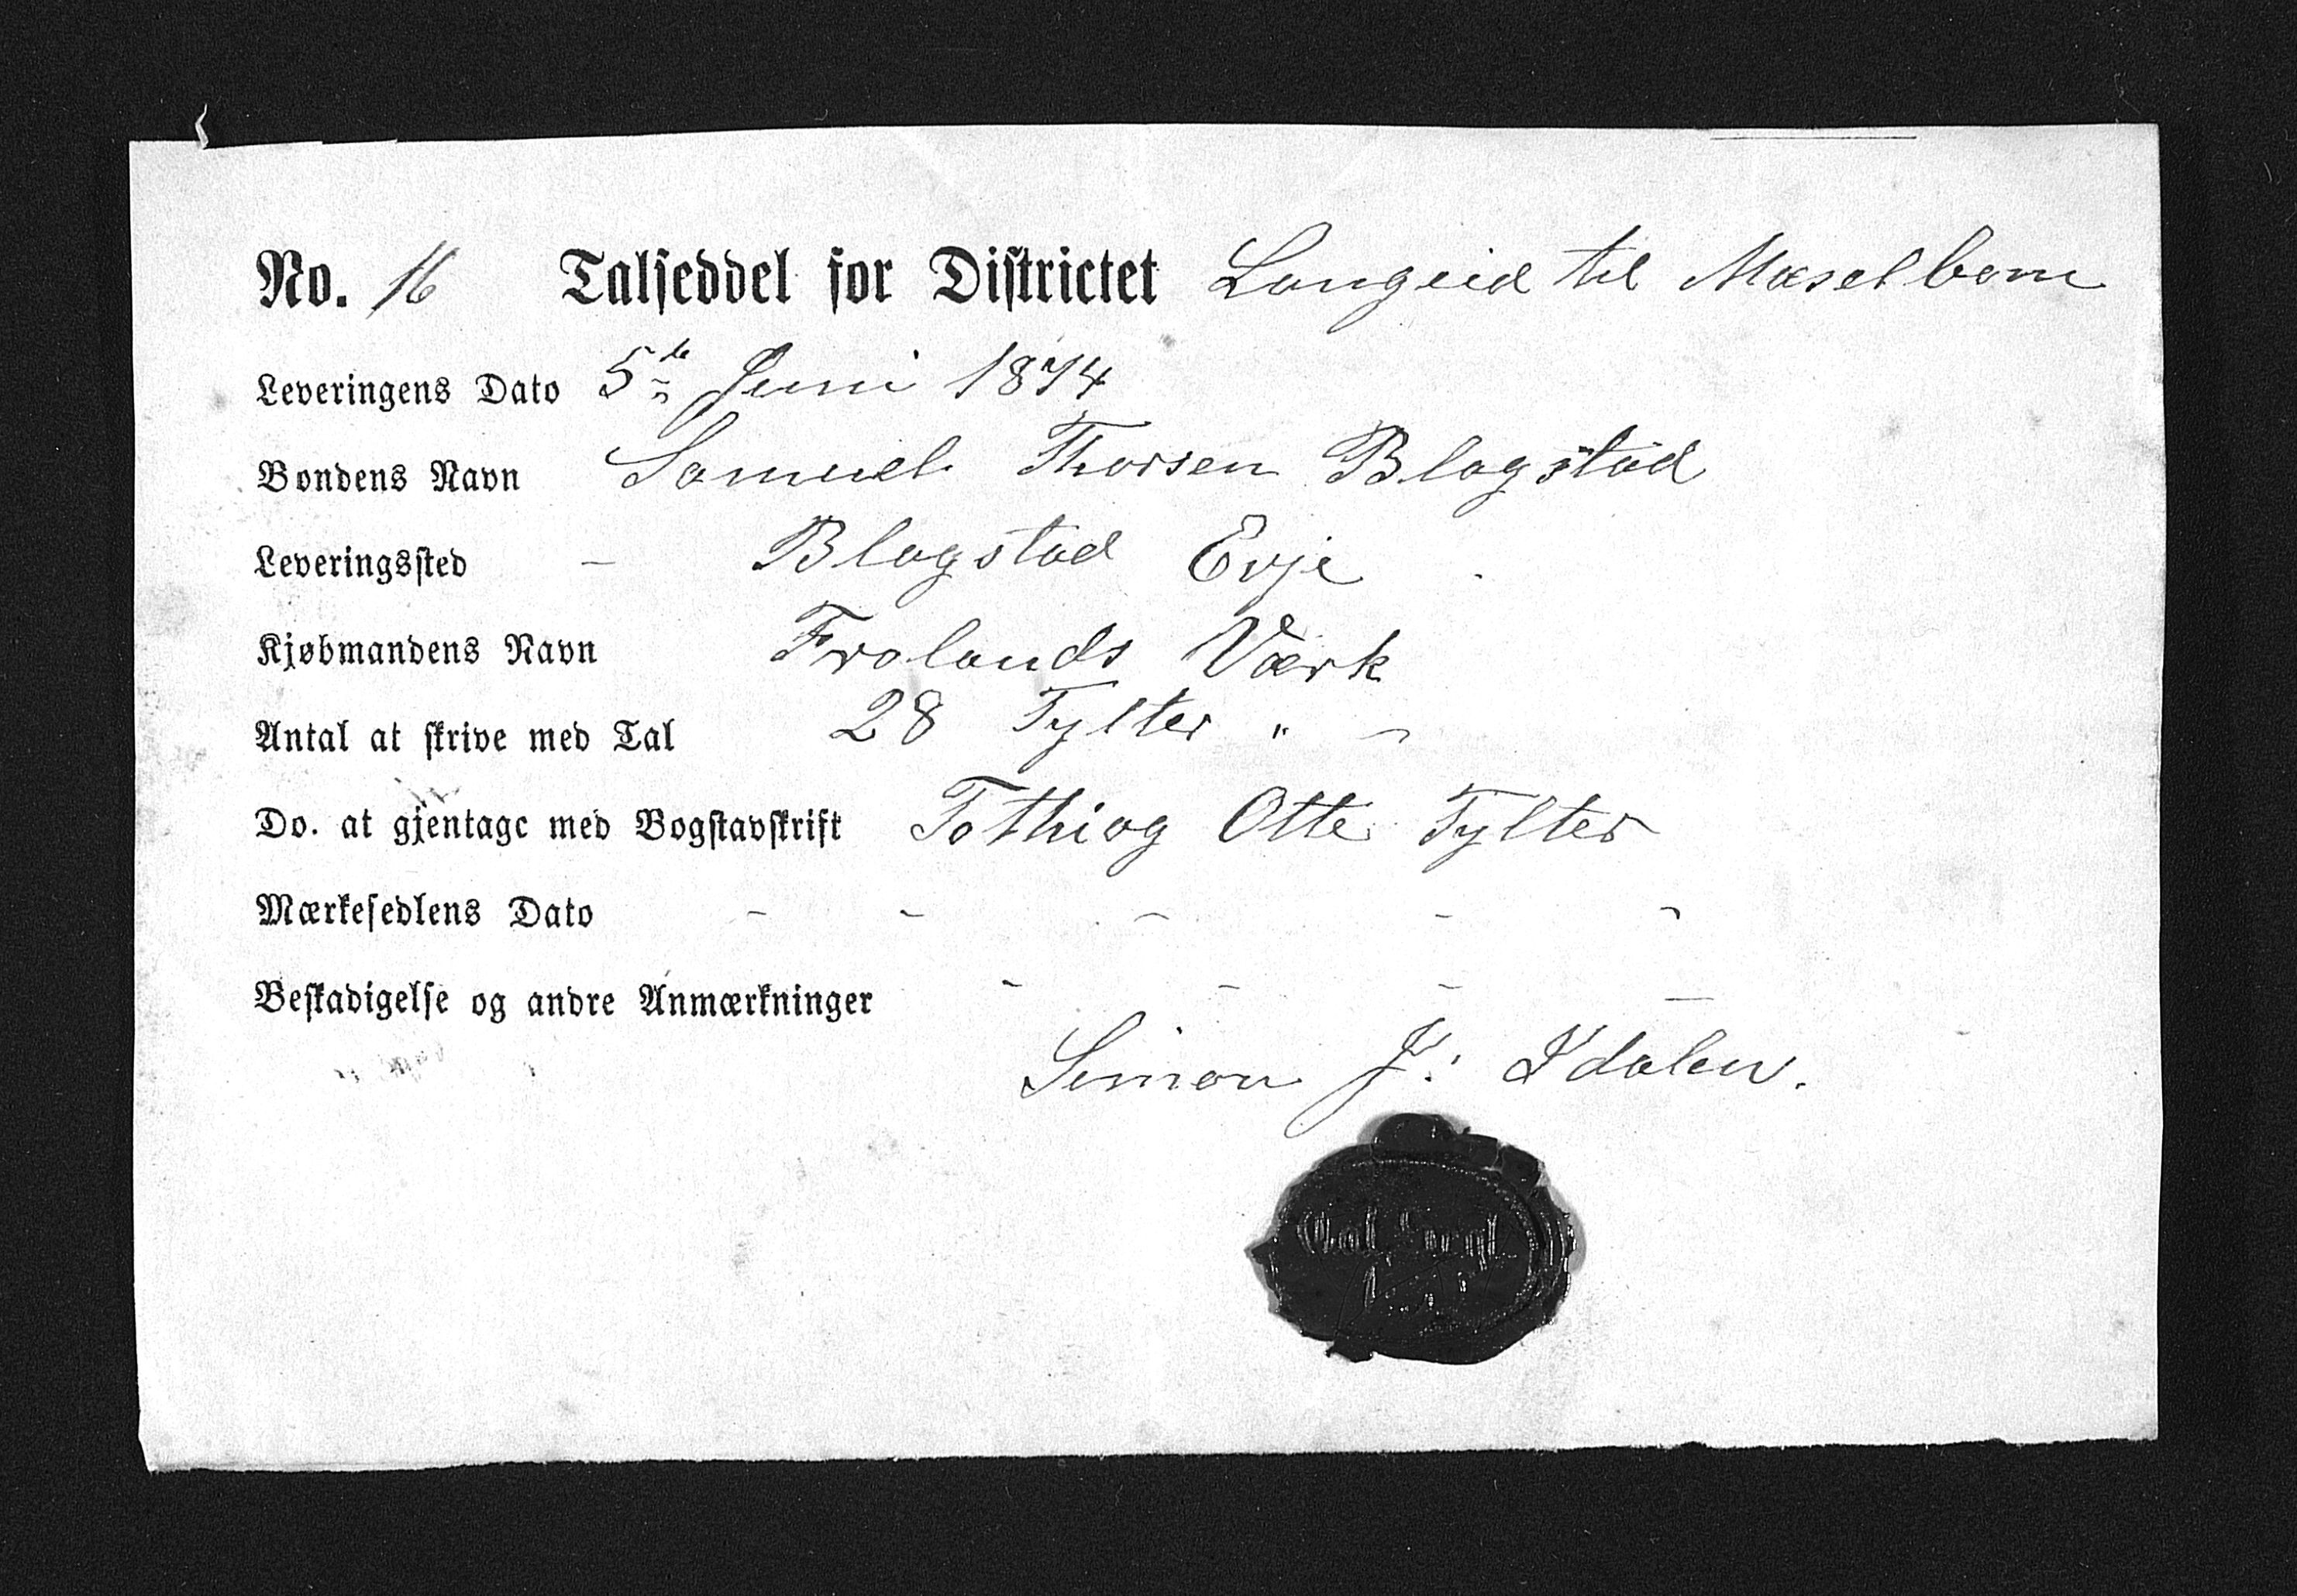 No. 16 Talseddel for Districtet Langeid til Mæselbom
Leveringens Dato 5te Juni 1874
Bondens Navn Samuel Thorsen Blagstad
Leveringssted - Blagstad Evje
Kjøbmandens Navn Frolands Værk
Antal at skrive med Tal 28 Tylter " -
Do. at gjentage med Bogstavskrift Tothiog Otte Tylter
Mærkesedlens Dato - - - - -
Beskadigelse og andre Anmærkninger - - - -
Simon J: Ydalen.